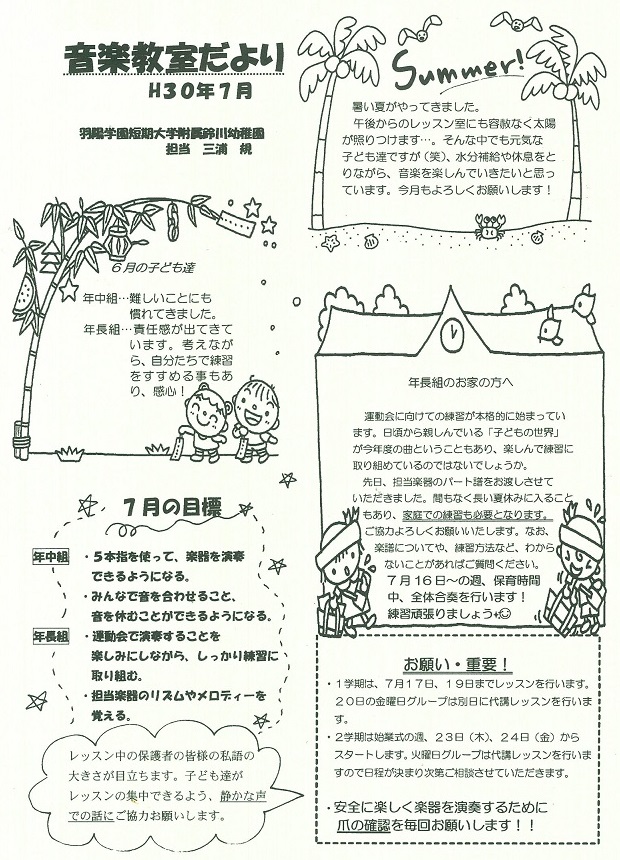 音楽教室だより
H30年7月
羽陽学園短期大学附属鈴川幼稚園
担当　三浦　規
Summer!
暑い夏がやってきました。
午後からのレッスン室にも容赦なく太陽
が照りつけます…。そんな中でも元気な
子ども達ですが（笑）、水分補給や休息をと
りながら、音楽を楽しんでいきたいと思っ
ています。今月もよろしくお願いします！
６月の子ども達
年中組…難しいことにも
慣れてきました。
年長組…責任感が出てきて
います。考えなが
ら、自分たちで練習
をすすめる事もあ
り、感心！
年長組のお家の方へ
運動会に向けての練習が本格的に始まってい
ます。日頃から親しんでいる「子どもの世界」
が今年度の曲ということもあり、楽しんで練習に
取り組めているのではないでしょうか。
先日、担当楽器のパート譜をお渡しさせて
いただきました。間もなく長い夏休みに入ること
もあり、家庭での練習も必要となります。
ご協力よろしくお願いいたします。なお、
楽譜についてや、練習方法など、わから
ないことがあればご質問ください。
７月１６日～の週、保育時間
中、全体合奏を行います！
練習頑張りましょう
７月の目標
年中組
・５本指を使って、楽器を演奏
できるようになる。
・みんなで音を合わせること、
音を休むことができるようになる。
年長組
・運動会で演奏することを
楽しみにしながら、しっかり練習に
取り組む。
・担当楽器のリズムやメロディーを
覚える。
レッスン中の保護者の皆様の私語の
大きさが目立ちます。子ども達が
レッスンの集中できるよう、静かな声
での話にご協力お願いします。
お願い・重要！
・１学期は、７月１７日、１９日までレッスンを行います。
２０日の金曜日グループは別日に代講レッスンを行いま
す。
・２学期は始業式の週、２３日（木）、２４日（金）から
スタートします。火曜日グループは代講レッスンを行いま
すので日程が決まり次第ご相談させていただきます。
・安全に楽しく楽器を演奏するために
爪の確認を毎回お願いします！！